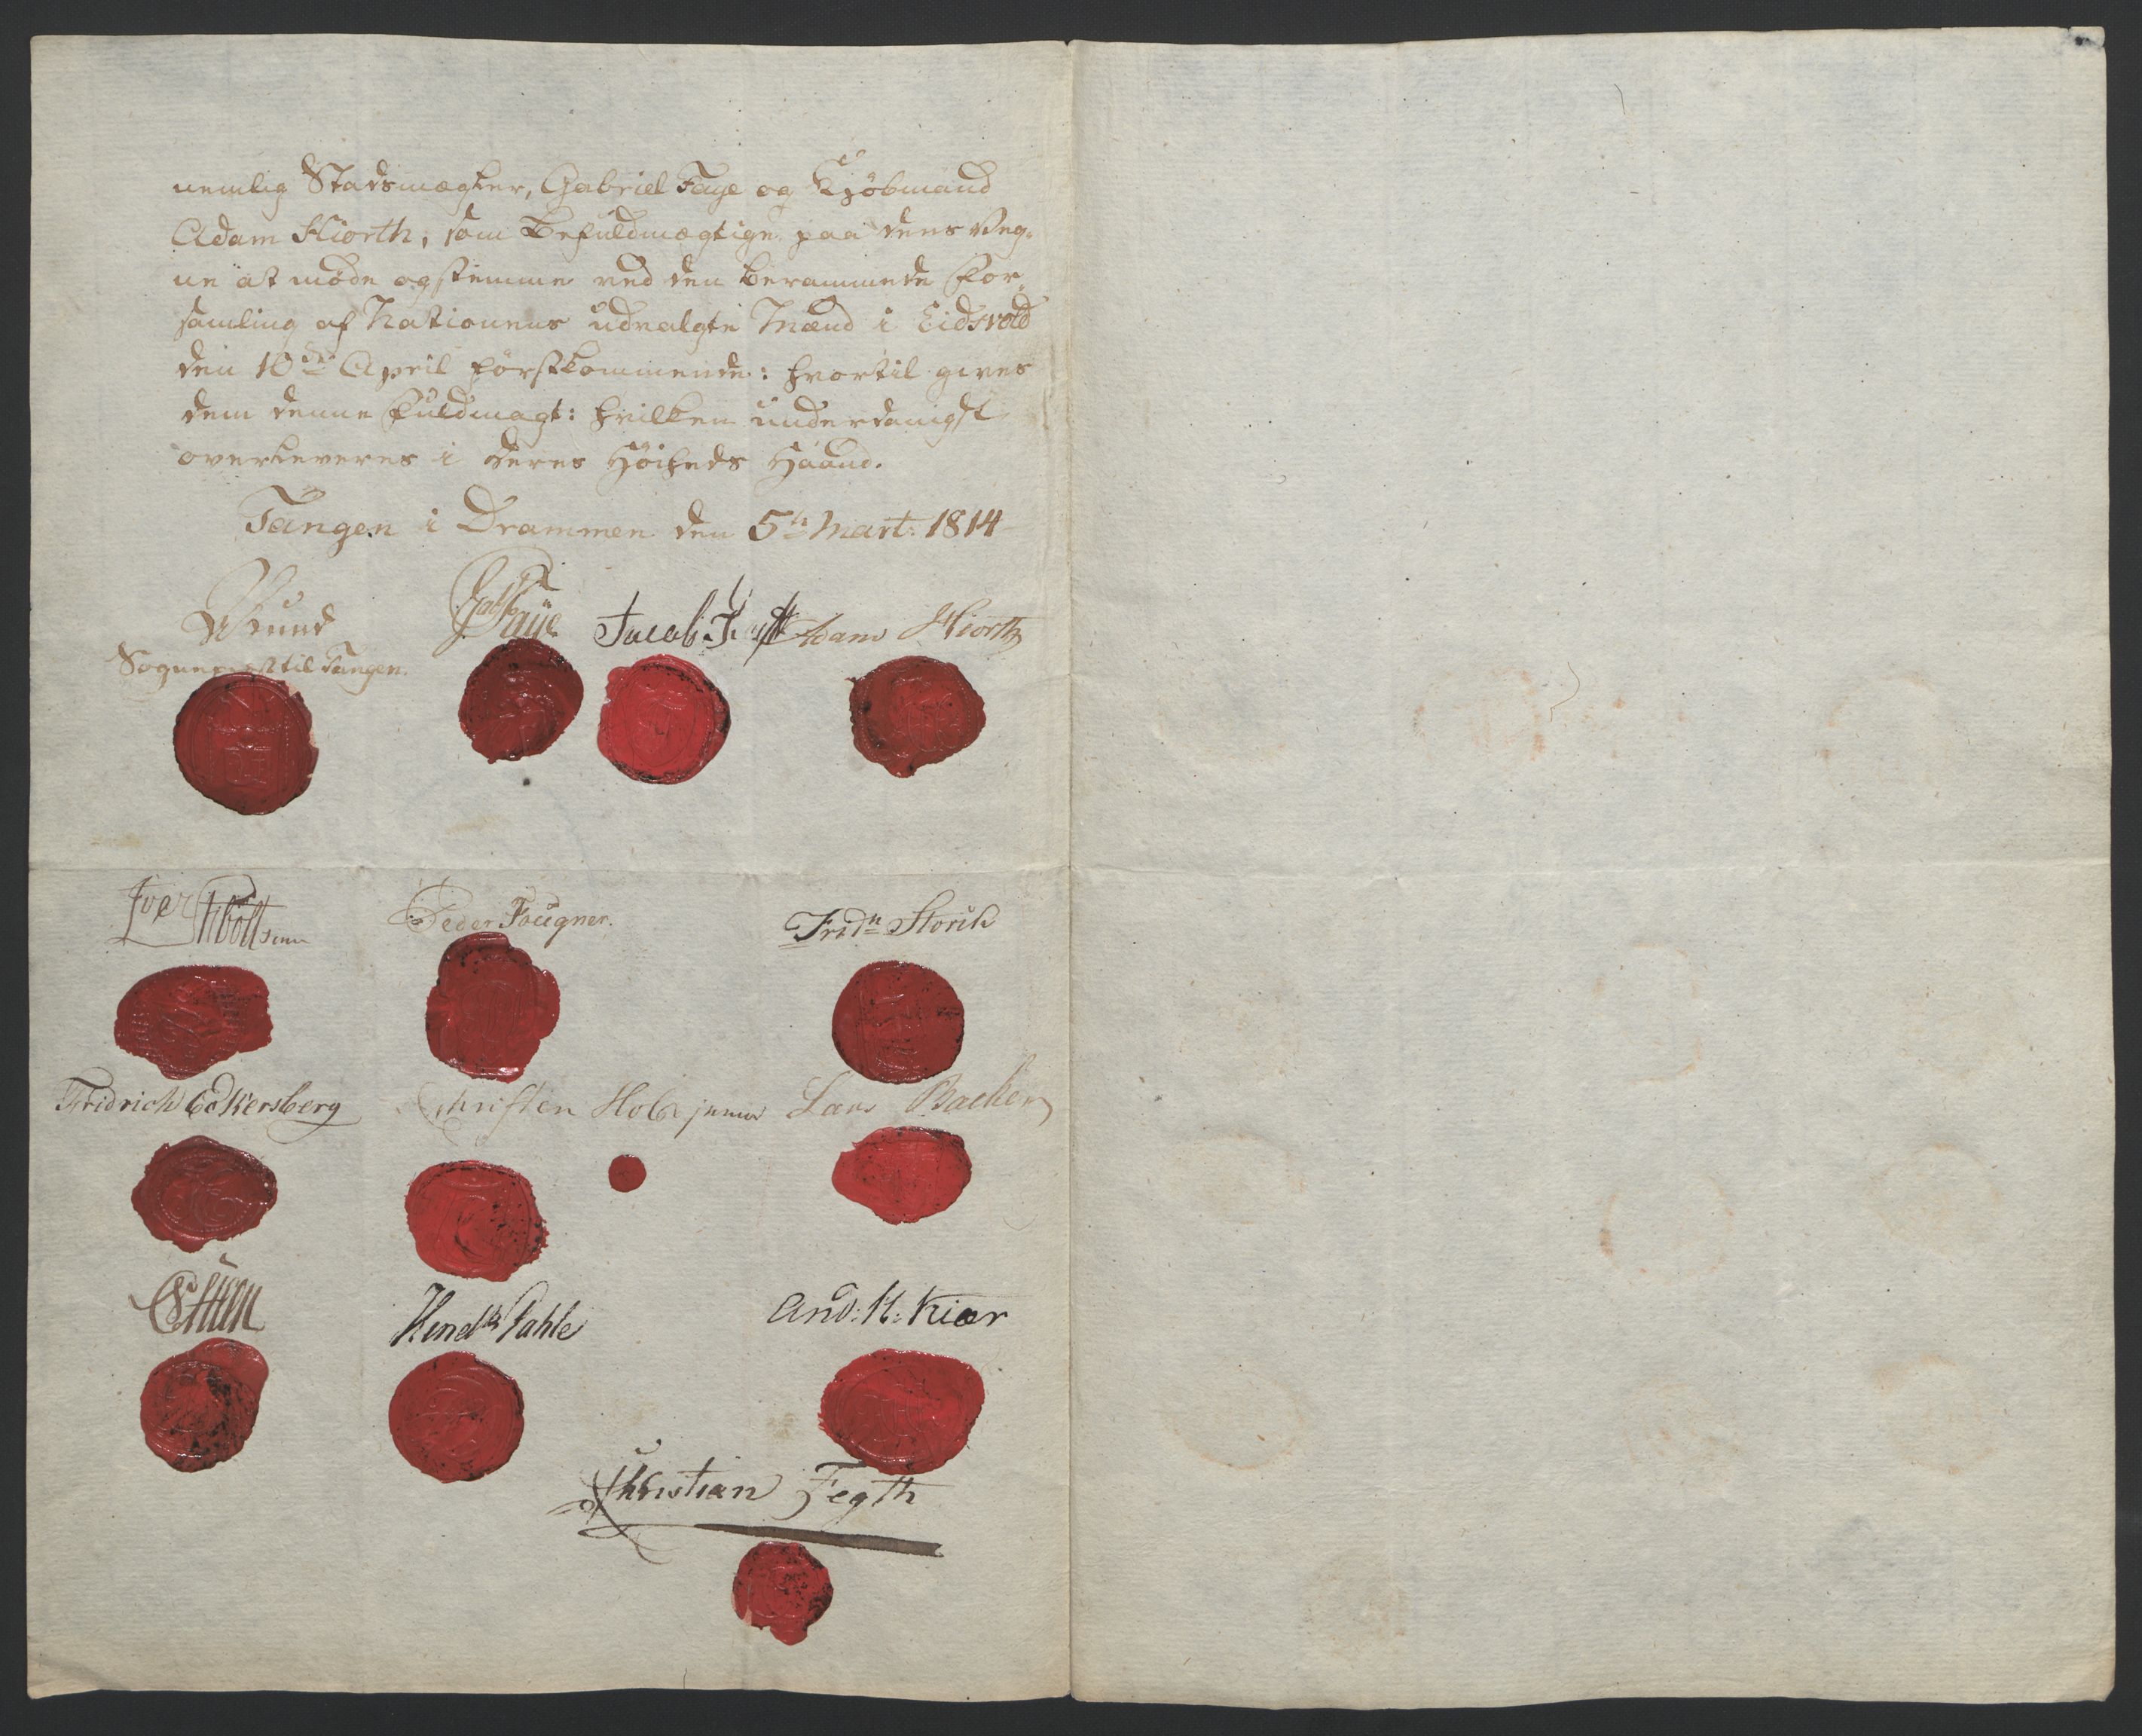 nemlig Stadsmægler, Gabriel Faye og Kjöbmand
Adam Hiorth, som Befuldmægtige paa dens Veg-
ne at møde og stemme ved den berammede For-
samling af Nationens udvalgte Mænd i Eidsvold
den 10de April förstkommende: hvortil gives
dem denne Fuldmagt: hvilken underdanigst
overleveres i Deres Höiheds Haand.
Tangen i Drammen den 5te Mart: 1814
Wsund Gab Faÿe Jacob Adam Hiorth
Sognepræst til Tangen.
Iver Holt Senr Peder Fougner. Fridn Storch
Fridrich Eckersberg Christen Holst junior Lars Backer
Hendk Pahle And: H: Kiær
Christian Fegth